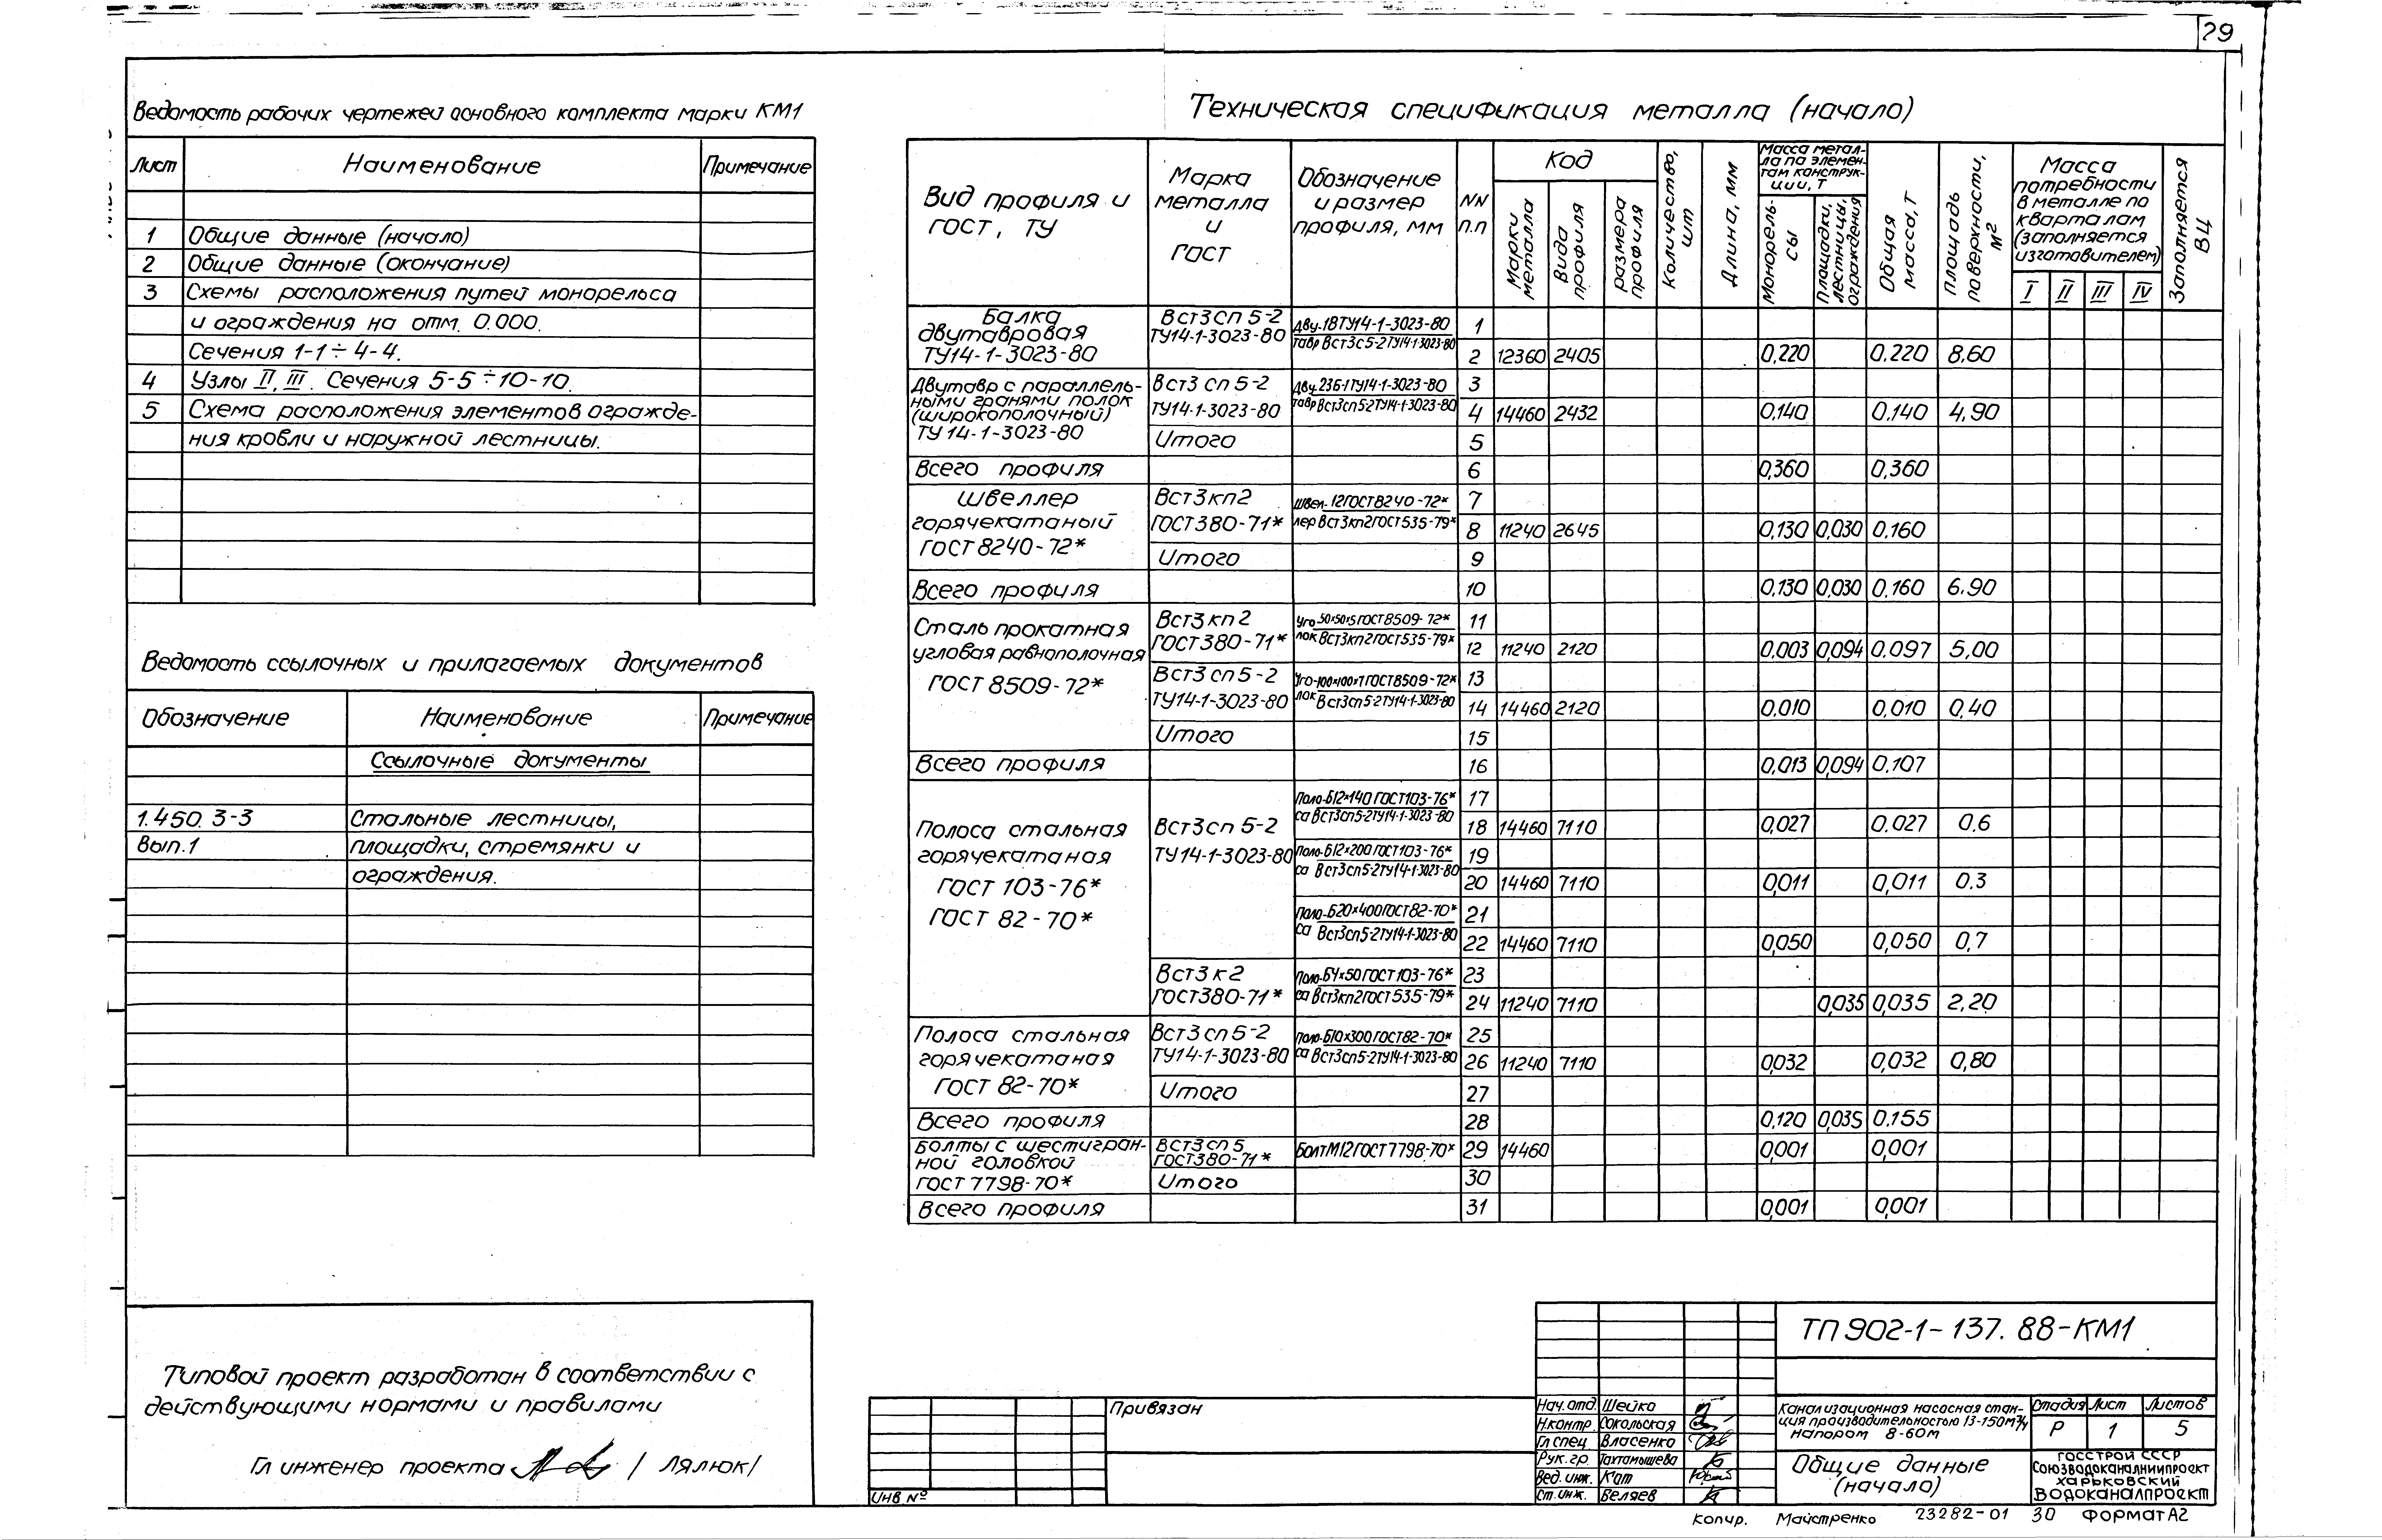 29
Ведомость рабочих чертежей основного комплекта марки КМ1
Лист Наименование Примечание
1 Общие данные (начало)
2 Общие данные (окончание)
3 Схемы расположения путей монорельса
и ограждения на отм. 0.000.
Сечения 1-1÷4-4.
4 Узлы II, III. Сечения 5-5÷10-10.
5 Схема расположения элементов огражде-
ния кровли и наружной лестницы.
Ведомость ссылочных и прилагаемых документов
Обозначение Наименование Примечание
Ссылочные документы
1.450.3-3 Стальные лестницы,
Вып.1 площадки, стремянки и
ограждения.
Типовой проект разработан в соответствии с
действующими нормами и правилами
Гл инженер проекта / Лялюк/
Техническая спецификация металла (начало)
Вид профиля и
ГОСТ, ТУ
Марка
металла
и
ГОСТ
Обозначение
и размер
профиля, мм
NN
п.п
Код
Марки
металла
Вида
профиля
размера
профиля
Количество,
шт
Длина, мм
Масса метал-
ла по элемен-
там конструк-
ции, Т
Монорель-
сы
Площадки,
лестницы,
ограждения
Общая
масса, Т
Площадь
поверхности,
м2
Масса
потребности
в металле по
кварталам
(заполняется
изготовителем)
I II III IV
Заполняется
ВЦ
Балка
двутавровая
ТУ14-1-3023-80
Вст3сп 5-2
ТУ14-1-3023-80
Дву-18ТУ14-1-3023-80
тавр Вст3с5-2ТУ14-1-3023-80
1
2 12360 2405 0,220 0.220 8,60
Двутавр с параллель-
ными гранями полок
(широкополочный)
ТУ 14-1-3023-80
Вст3 сп 5-2
ТУ14-1-3023-80
Дву.23Б-1ТУ14-1-3023-80
тавр Вст3сп5-2ТУ14-1-3023-80
3
4 14460 2432 0,140 0.140 4,90
Итого 5
Всего профиля 6 0,360 0,360
Швеллер
горячекатаный
ГОСТ 8240-72*
Вст3кп2
ГОСТ380-71*
Швел-12ГОСТ8240-72*
лер Вст3кп2ГОСТ535-79*
7
8 11240 2645 0,130 0,030 0.160
Итого 9
Всего профиля 10 0,130 0,030 0.160 6.90
Сталь прокатная
угловая равнополочная
ГОСТ 8509-72*
Вст3 кп 2
ГОСТ380-71*
Уго.50х50х5ГОСТ8509-72*
лок Вст3кп2ГОСТ535-79*
11
12 11240 2120 0.003 0,094 0.097 5,00
Вст3 сп 5-2
ТУ14-1-3023-80
Уго-100х100х7ГОСТ8509-72*
лок Вст3сп5-2ТУ14-1-3023-80
13
14 14460 2120 0.010 0,010 0,40
Итого 15
Всего профиля 16 0,013 0,094 0.107
Полоса стальная
горячекатаная
ГОСТ 103-76*
ГОСТ 82-70*
Вст3сп 5-2
ТУ14-1-3023-80
Поло-Б12х140 ГОСТ103-76*
са Вст3сп5-2ТУ14-1-3023-80
17
18 14460 7110 0,027 0.027 0.6
Поло-Б12х200ГОСТ103-76*
са Вст3сп5-2ТУ14-1-3023-80
19
20 14460 7110 0,011 0,011 0.3
Поло-Б20х400ГОСТ82-70*
са Вст3сп5-2ТУ14-1-3023-80
21
22 14460 7110 0,050 0,050 0,7
Вст3 к2
ГОСТ380-71*
Поло-Б4х50ГОСТ103-76*
са Вст3кп2ГОСТ535-79*
23
24 11240 7110 0,035 0,035 2,20
Полоса стальная
горячекатаная
ГОСТ 82-70*
Вст3 сп 5-2
ТУ14-1-3023-80
Поло-Б10х300ГОСТ82-70*
са Вст3сп5-2ТУ14-1-3023-80
25
26 11240 7110 0,032 0,032 0,80
Итого 27
Всего профиля 28 0,120 0,035 0.155
Болты с шестигран-
ной головкой
ГОСТ 7798-70*
Вст3 сп 5
ГОСТ380-71*
БолтМ12ГОСТ7798-70*
29 14460 0,001 0,001
Итого 30
Всего профиля 31 0,001 0,001
Привязан
Инв №
ТП 902-1-137.88-КМ1
Нач.отд. Шейко
Н.контр. Сокольская
Гл спец Власенко
Рук.гр. Тахтамышева
Вед.инж. Кат
Ст.инж. Беляев
Канализационная насосная стан-
ция производительностью 13-150м³/ч
напором 8-60м
Стадия Лист Листов
Р 1 5
Общие данные
(начало)
ГОССТРОЙ СССР
Союзводоканалниипроект
Харьковский
Водоканалпроект
Копир. Майстренко 23282-01 30 Формат А2